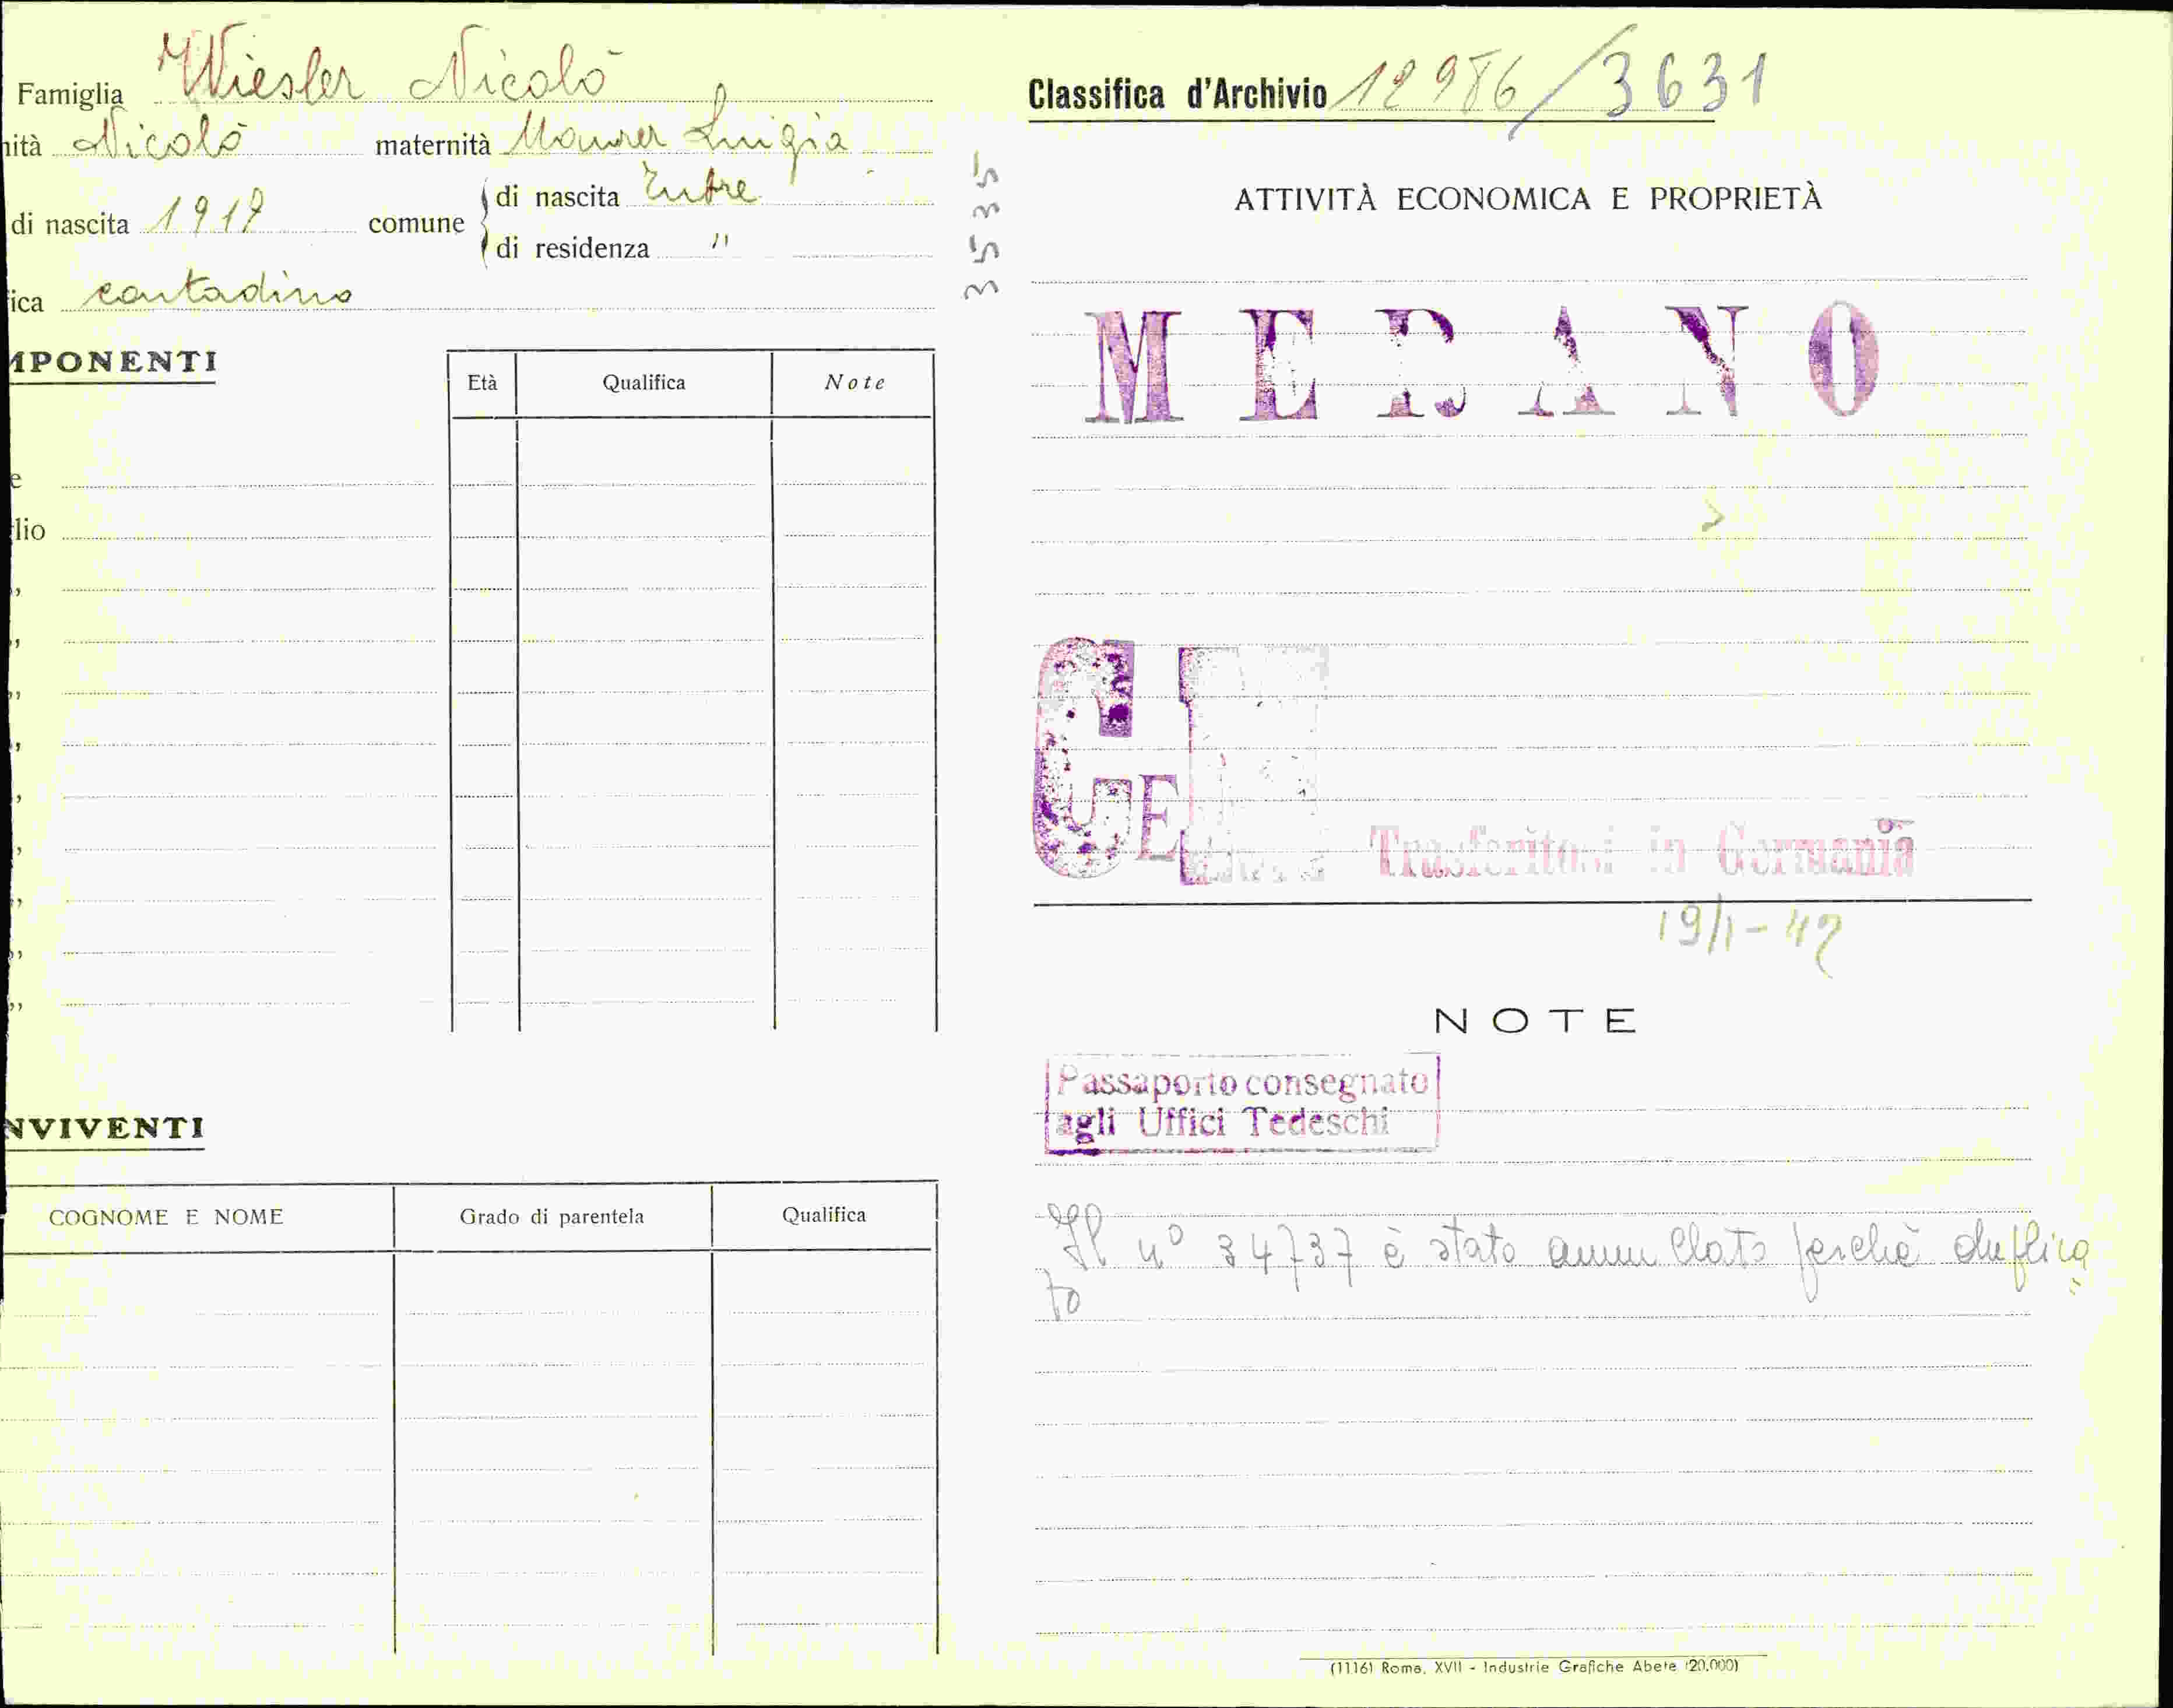 Famiglia Wiesler Nicolò
nità Nicolò maternità Maurer Luigia
di nascita 1919 comune di nascita Tubre
di residenza "
ica contadino
MPONENTI
Età Qualifica Note
e
glio
NVIVENTI
COGNOME E NOME Grado di parentela Qualifica
35355
Classifica d'Archivio 12986/3631
ATTIVITÀ ECONOMICA E PROPRIETÀ
MERANO
Trasferitosi in Germania
NOTE
Passaporto consegnato
agli Uffici Tedeschi
Il n° 34737 è stato annullato perchè duplica
to
(11161 Roma, XVII - Industrie Grafiche Abete (20.000)